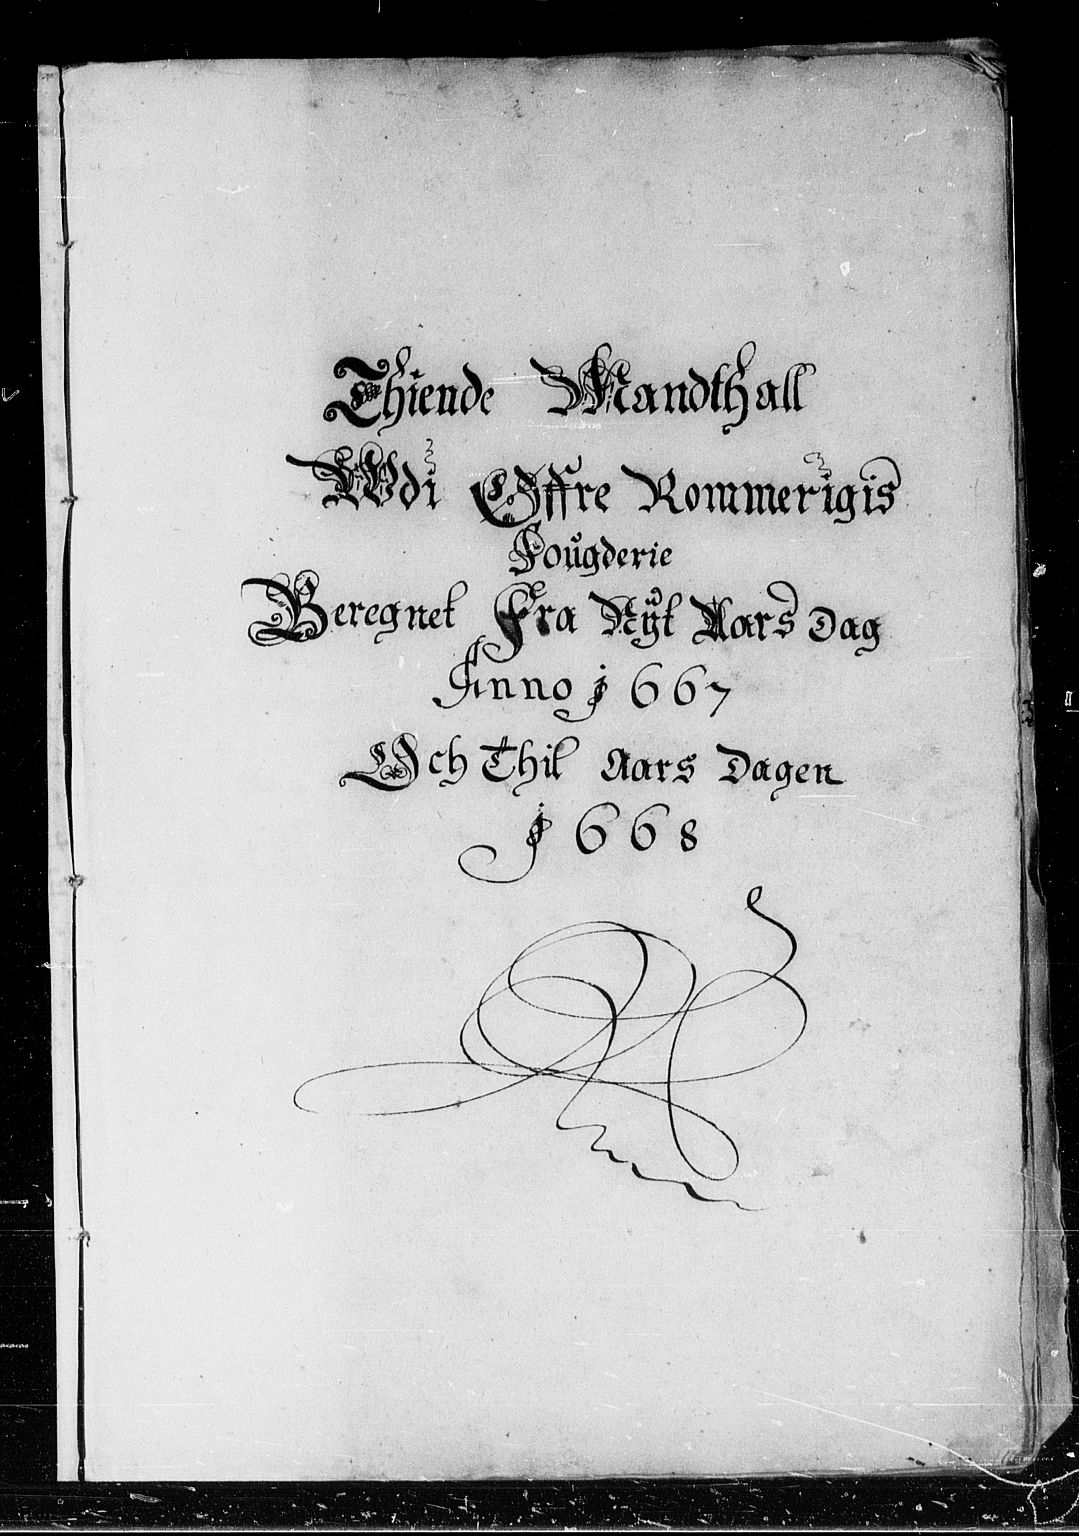 Thiende Mandthall
Wdi Öffre Rommerigis
Fougderie
Beregnet Fra Nÿt Aars Dag
Anno 1667
Och Thil Aars Dagen
1668